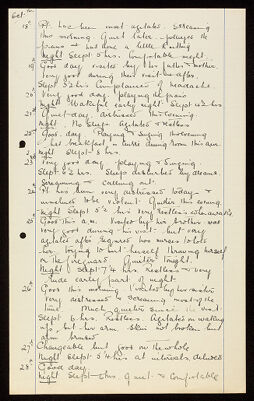 Oct.
18th Pt. has been most agitated. Screaming
this morning. Quiet later - played the
piano & has done a little knitting
night Slept 5 hrs. Comfortable night.
19 Good day visited by her father & mother.
Very good during their visit & after.
Slept 5 1/2 hrs Complained of headache
20 Very good day - playing the piano
night Wakeful early night Slept 4 1/2 hrs
21 Quiet day, distressed this evening
night No Sleep. Agitated & Restless
22 Good day Playing & Singing this evening
her breakfast in nurses dining room this am.
night Slept 5 hrs.
23 Very good day - playing & Singing.
Slept 6 1/2 hrs. Sleep disturbed by dreams.
Screaming & calling out.
24 Pt. has been very distressed today &
inclined to be violent. Quieter this evening.
night Slept 5 1/2 hrs
25 Good this a.m. Visited by her brother was
very good during his visit - but very
agitated after. Required two nurses to hold
her. Trying to hurt herself throwing herself
on the fireguard. Quieter tonight.
Night Slept 7 1/4 hrs. Restless & very
early part of night.
26 Good this morning Visited by her sister
Very distressed & Screaming most of the
time Much quieter since the visit.
Slept 6 hrs. Restless. Agitated on waking
up, but her arm. Skin not broken but
arm bruised
27 Changeable but good on the whole
Night Slept 5 1/4 hrs at intervals,
28 Good day.
night Slept hrs. Quiet & Comfortable